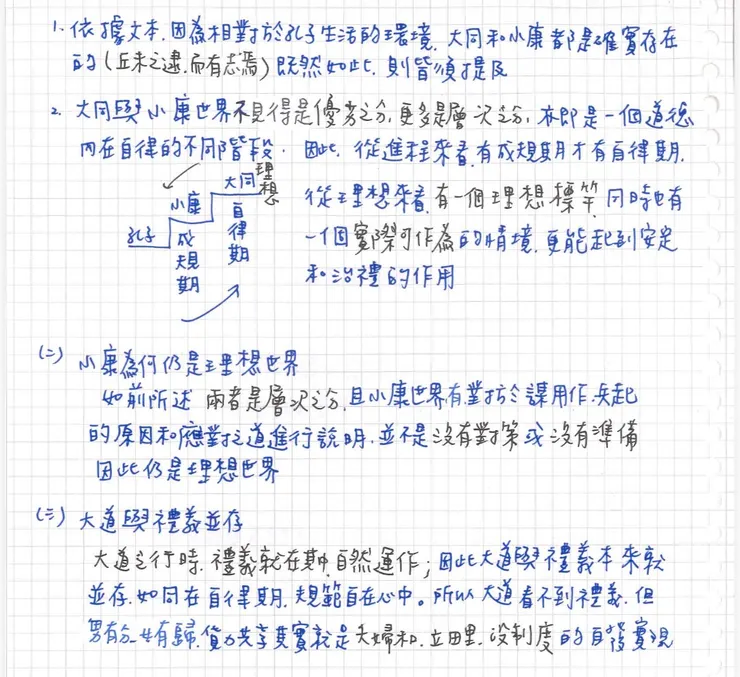 1. 依據文本,因為相對於孔子生活的環境,大同和小康都是確實存在
的(丘未之逮,而有志焉)既然如此,則皆須提及
2. 大同與小康世界不見得是優劣之分,更多是層次之分,亦即是一個道德
內在自律的不同階段。因此,從進程來看,有成規期才有自律期.
從理想來看,有一個理想標竿,同時也有
一個實際可作為的情境,更能起到安定
和治禮的作用
孔子
小康
大同
理想
成規期
自律期
(二) 小康為何仍是理想世界
如前所述 兩者是層次之分,且小康世界有對於謀用作,兵起
的原因和應對之道進行說明,並不是沒有對策或沒有準備
因此仍是理想世界
(三) 大道與禮義並存
大道之行時,禮義就在其中自然運作;因此大道與禮義本來就
並存,如同在自律期,規範自在心中。所以大道看不到禮義,但
男有分,女有歸,貨力共享其實就是夫婦和,立田里,設制度的自發實現